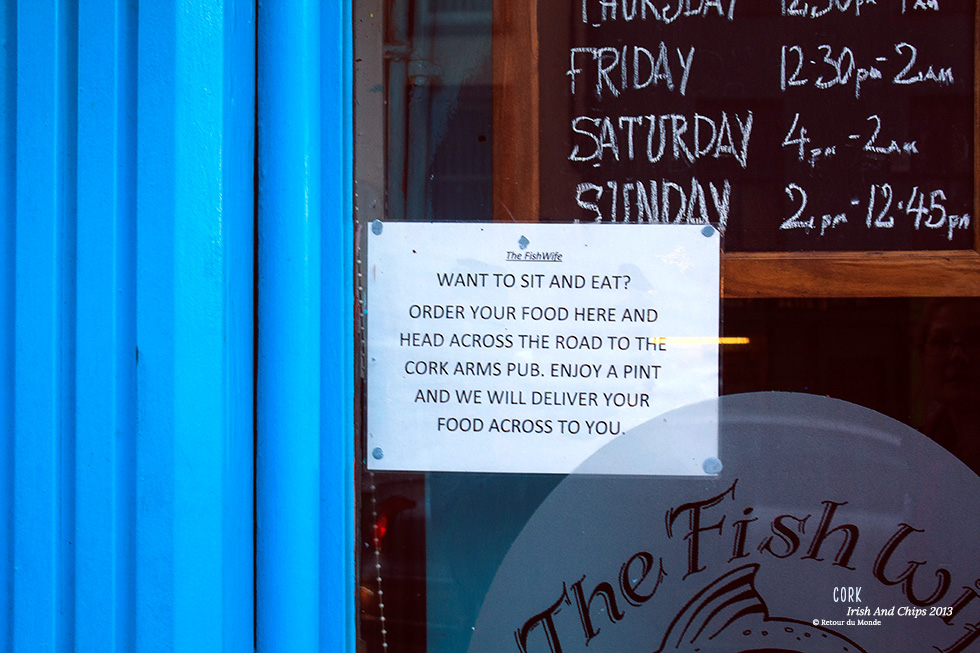 THURSDAY 12.30pm
FRIDAY 12.30pm-2AM
SATURDAY 4pm-2am
SUNDAY 2pm-12.45pm
The FishWife
WANT TO SIT AND EAT?
ORDER YOUR FOOD HERE AND
HEAD ACROSS THE ROAD TO THE
CORK ARMS PUB. ENJOY A PINT
AND WE WILL DELIVER YOUR
FOOD ACROSS TO YOU.
The Fish Wif
CORK
Irish And Chips 2013
© Retour du Monde